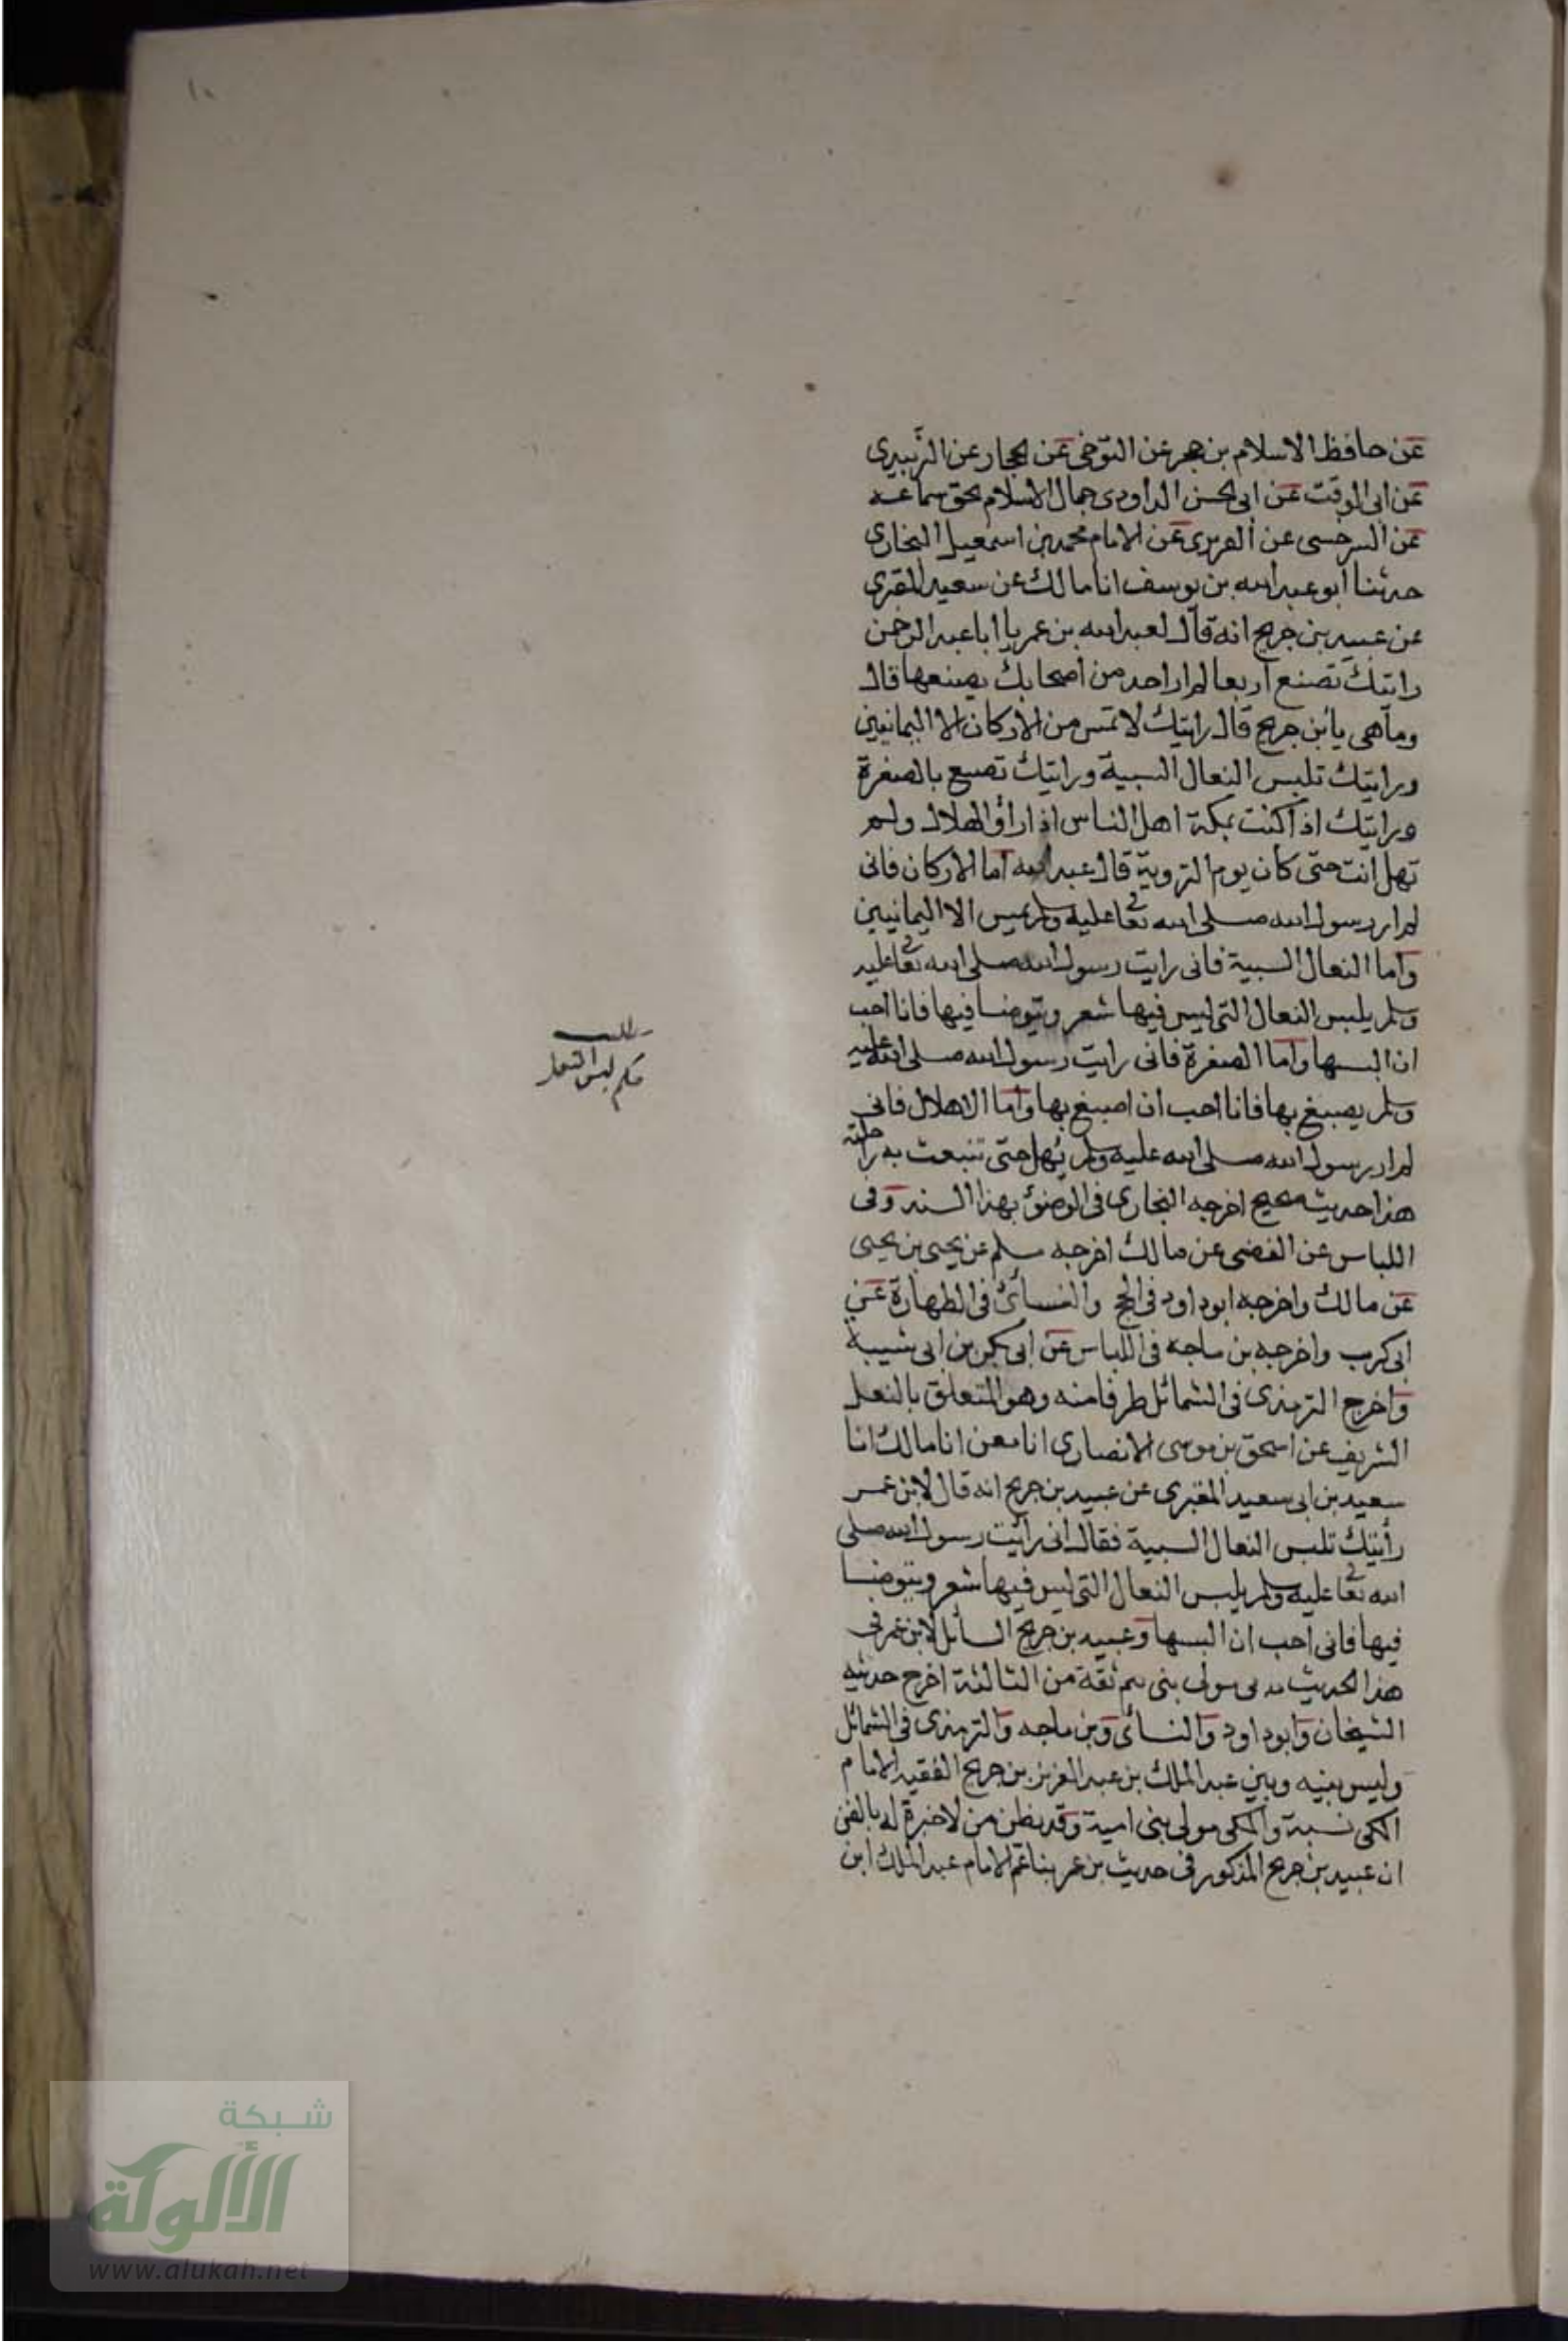 ١٠
عن حافظ الاسلام بن حجر عن التوخى عن الحجار عن الزبيدى
عن ابى الوقت عن ابى الحسن الداودى جمال الاسلام بحق سماعه
عن السرخسى عن الفربرى عن الامام محمد بن اسمعيل البخارى
حدثنا ابو عبد الله بن يوسف انا مالك عن سعيد المقبرى
عن عبيد بن جريح انه قال لعبد الله بن عمر يا ابا عبد الرحمن
رايتك تصنع اربعا لم ار احد من اصحابك يصنعها قال
وما هى يا بن جريح قال رايتك لا تمس من الاركان الا اليمانيين
ورايتك تلبس النعال السبية ورايتك تصبع بالصفرة
ورايتك اذا كنت بمكة اهل الناس اذا راؤ الهلال ولم
تهل انت حتى كان يوم التروية قال عبد الله اما الاركان فانى
لم ار رسول الله صلى الله تعا عليه وسلم يمس الا اليمانيين
واما النعال السبية فانى رايت رسول الله صلى الله تعا عليه
وسلم يلبس النعال التى ليس فيها شعر ويتوضا فيها فانا احب
ان البسها واما الصفرة فانى رايت رسول الله صلى الله عليه
وسلم يصبغ بها فانا احب ان اصبغ بها واما الاهلال فانى
لم ار رسول الله صلى الله عليه وسلم يهل حتى تنبعث به راحلته
هذا حديث صحيح اخرجه البخارى فى الوضؤ بهذا السند وفى
اللباس عن القضى عن مالك اخرجه مسلم عن يحيى بن يحيى
عن مالك واخرجه ابو داود فى الحج والنسائى فى الطهارة عن
ابى كرب واخرجه بن ماجه فى اللباس عن ابى بكر بن ابى شيبة
واخرج الترمذى فى الشمائل طرفا منه وهو المتعلق بالنعل
الشريف عن اسحق بن موسى الانصارى انا معن انا مالك انا
سعيد بن ابى سعيد المقبرى عن عبيد بن جريح انه قال لابن عمر
رأيتك تلبس النعال السبية فقال انى رائت رسول الله صلى
الله تعا عليه وسلم يلبس النعال التى ليس فيها شعر ويتوضا
فيها فانى احب ان البسها وعبيد بن جريح السائل لابن عمر فى
هذا الحديث مولى بنى ثقة من الثالثة اخرج حديثه
الشيخان وابو داود والنسائى وبن ماجه والترمذى فى الشمائل
وليس بينه وبين عبد الملك بن عبد العزيز بن جريح الفقيه الامام
المكى نسبة والمكى مولى بنى امية وقد يظن من لا خبرة له بالفن
ان عبيد بن جريح المذكور فى حديث بن عمر هنا عم الامام عبد الملك ابن
مطلب
حكم لبس النعال
شبكة
الألوكة
www.alukah.net